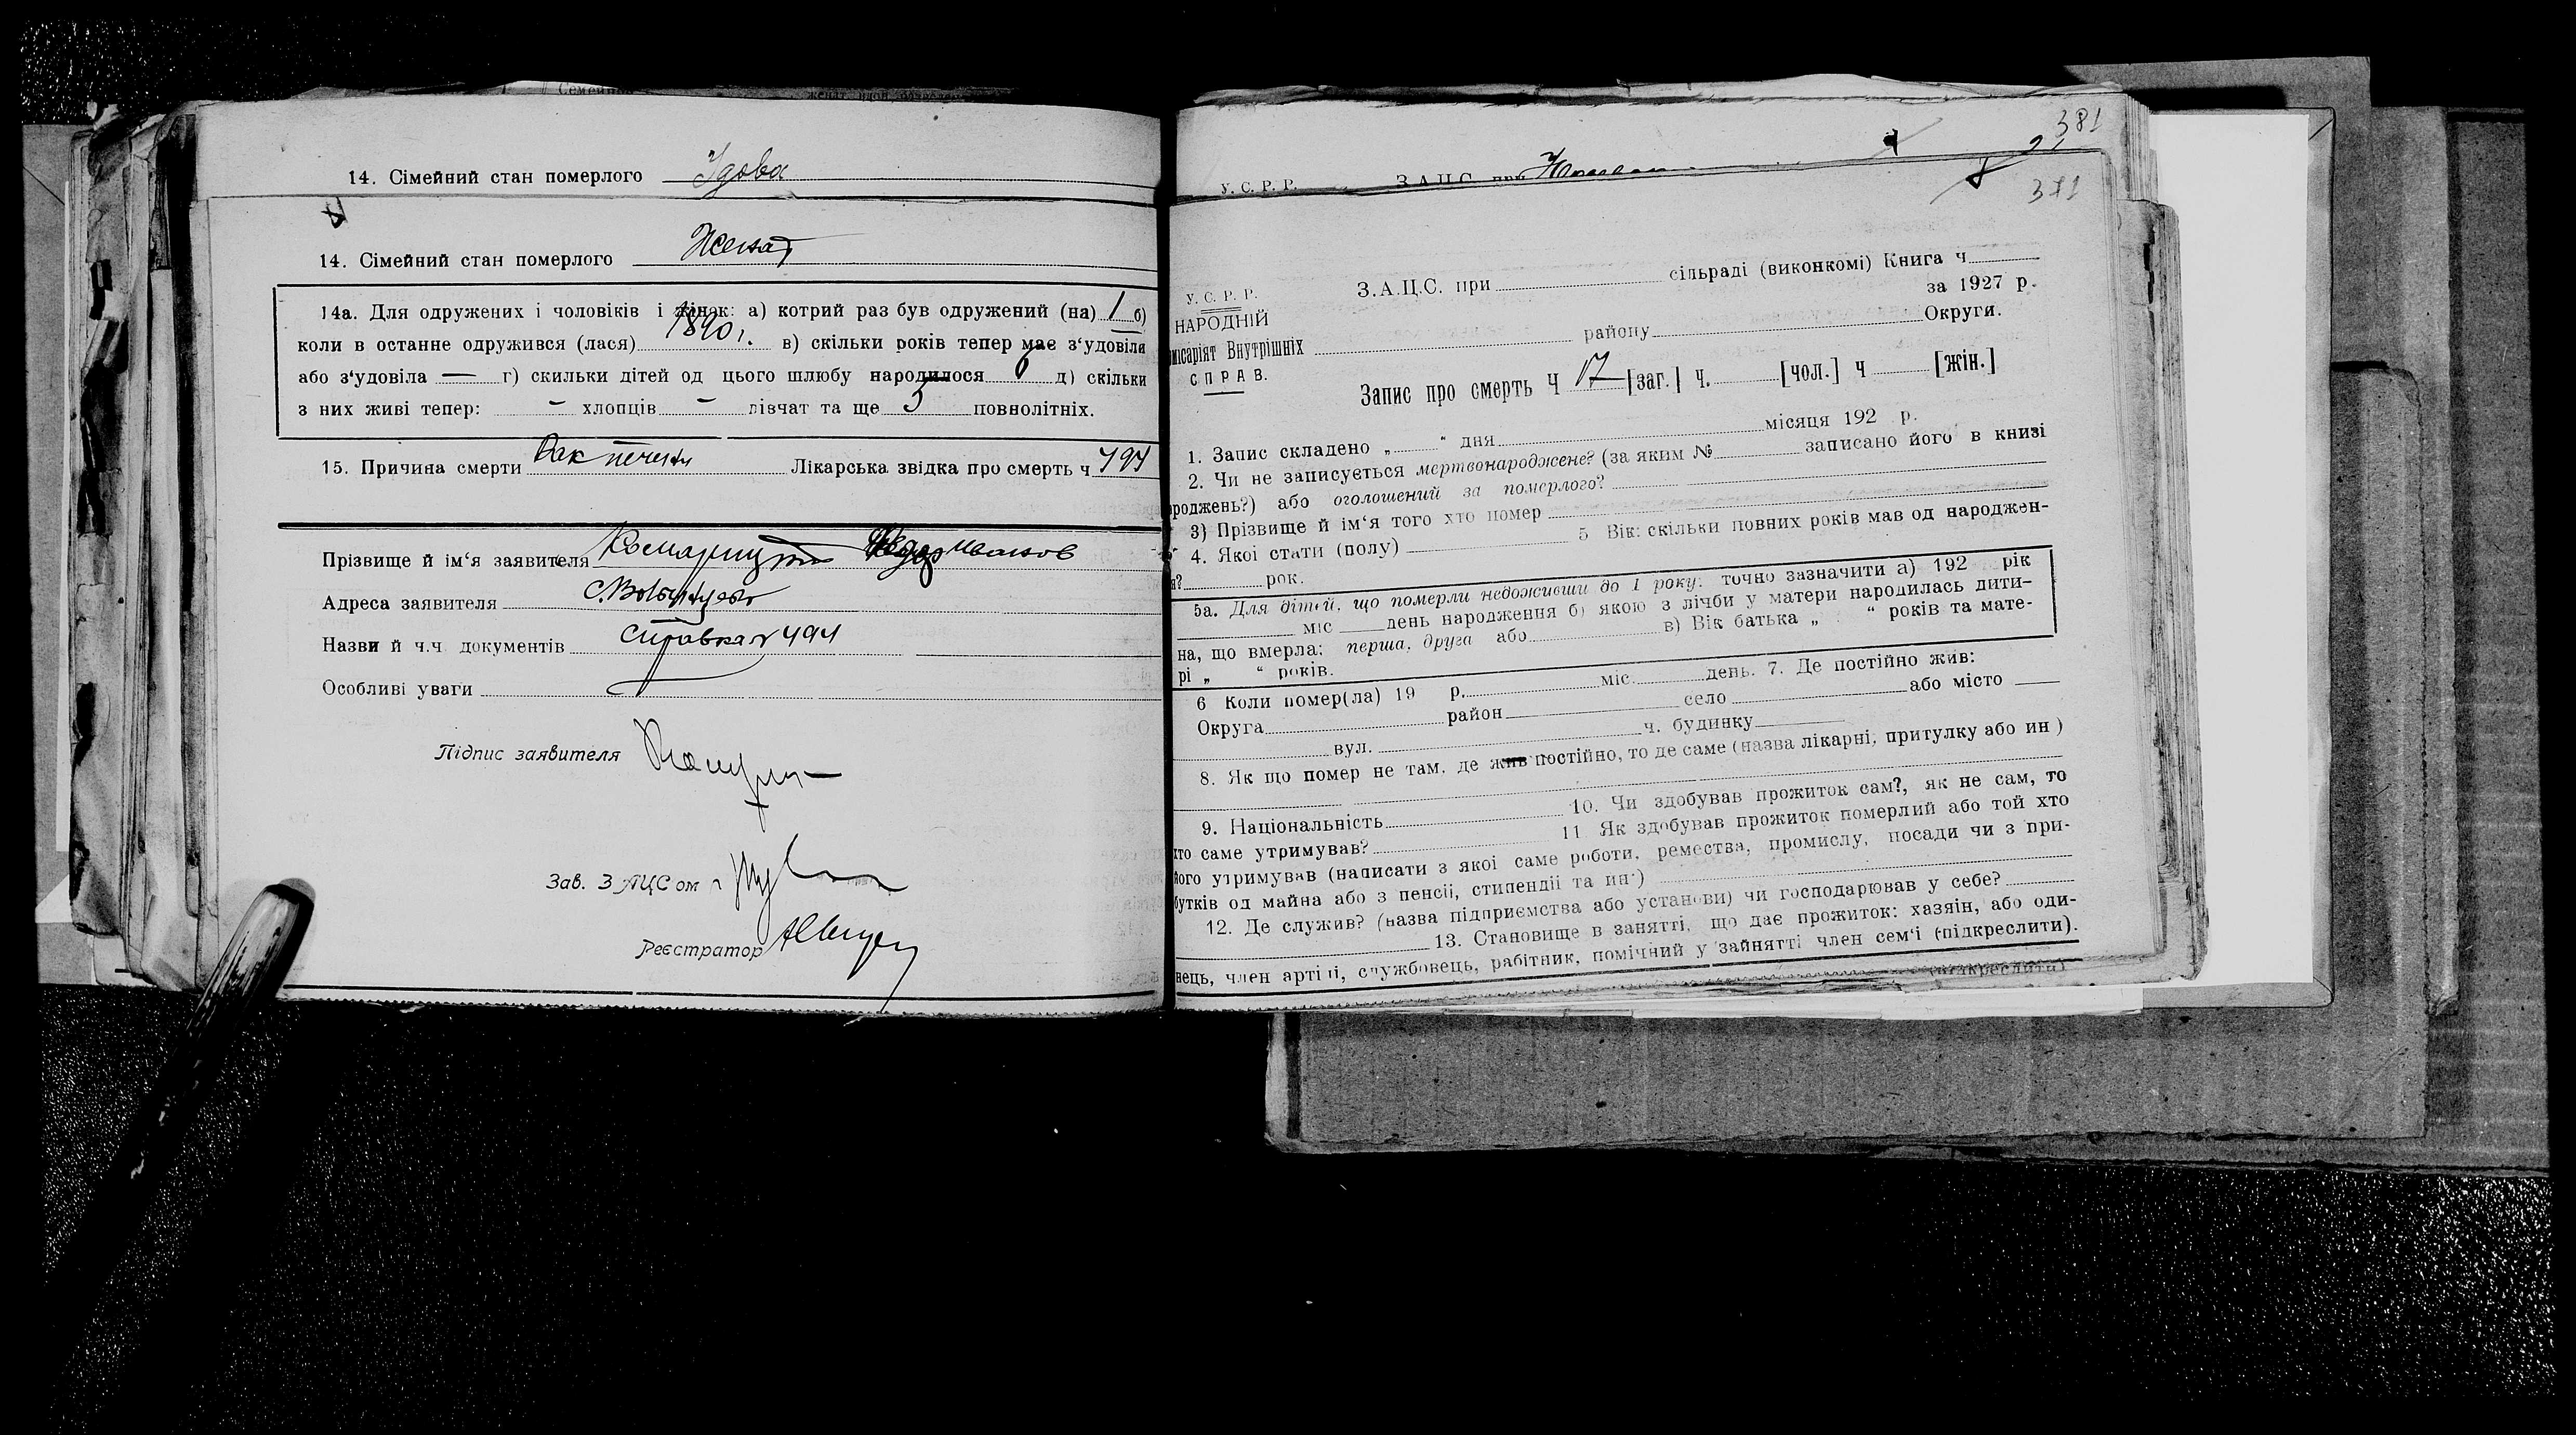 14. Сімейний стан померлого Удова
14. Сімейний стан померлого Женат
14а. Для одружених і чоловіків і жінок: а) котрий раз був одружений (на) 1 б)
коли в останне одружився (лася) 1890 г. в) скільки років тепер має з‘удовіла
або з‘удовіла — г) скильки дітей од цього шлюбу народилося 6 д) скільки
з них живі тепер: – хлопців – дівчат та ще 5 повнолітніх.
15. Причина смерти Рак печени Лікарська звідка про смерть ч 494
Прізвище й ім‘я заявителя Комарицкий Федор Иванов
Адреса заявителя С.
Назви й ч.ч документів Справка № 494
Особливі уваги
Підпис заявителя
Зав. ЗАЦСом
Реєстратор
381
У. С. Р. Р. З.А.Ц.С. при
371
У. С. Р. Р.
НАРОДНІЙ
місаріят Внутрішніх
СПРАВ.
З.А.Ц.С. при сільраді (виконкомі) Книга ч
за 1927 р.
району Округи.
Запис про смерть Ч 17 [заг.] ч. [чол.] ч [жін.]
1. Запис складено „ “ дня місяця 192 р.
2. Чи не записується мертвонароджене? (за яким № записано його в книзі
роджень?) або оголошений за померлого?
3) Прізвище й ім‘я того хто помер
4. Якої стати (полу) 5 Вік: скільки повних років мав од народжен-
я? рок.
5а. Для дітей, що померли недоживши до 1 року: точно зазначити а) 192 рік
міс день народження б) якою з лічби у матери народилась дити-
на, що вмерла: перша, друга або в) Вік батька „ “ років та мате-
рі „ “ років.
6 Коли помер(ла) 19 р. міс. день. 7. Де постійно жив:
Округа район село або місто
вул. ч. будинку
8. Як що помер не там, де жив постійно, то де саме (назва лікарні, притулку або ин )
9. Національність 10. Чи здобував прожиток сам?, як не сам, то
хто саме утримував? 11 Як здобував прожиток померлий або той хто
його утримував (написати з якої саме роботи, ремества, промислу, посади чи з при-
бутків од майна або з пенсії, стипендії та ин·)
12. Де служив? (назва підприємства або установи) чи господарював у себе?
13. Становище в занятті, що дає прожиток: хазяін, або оди-
нець, член артілі, службовець, рабітник, помічний у зайнятті член сем‘ї (підкреслити).
(підкреслити)